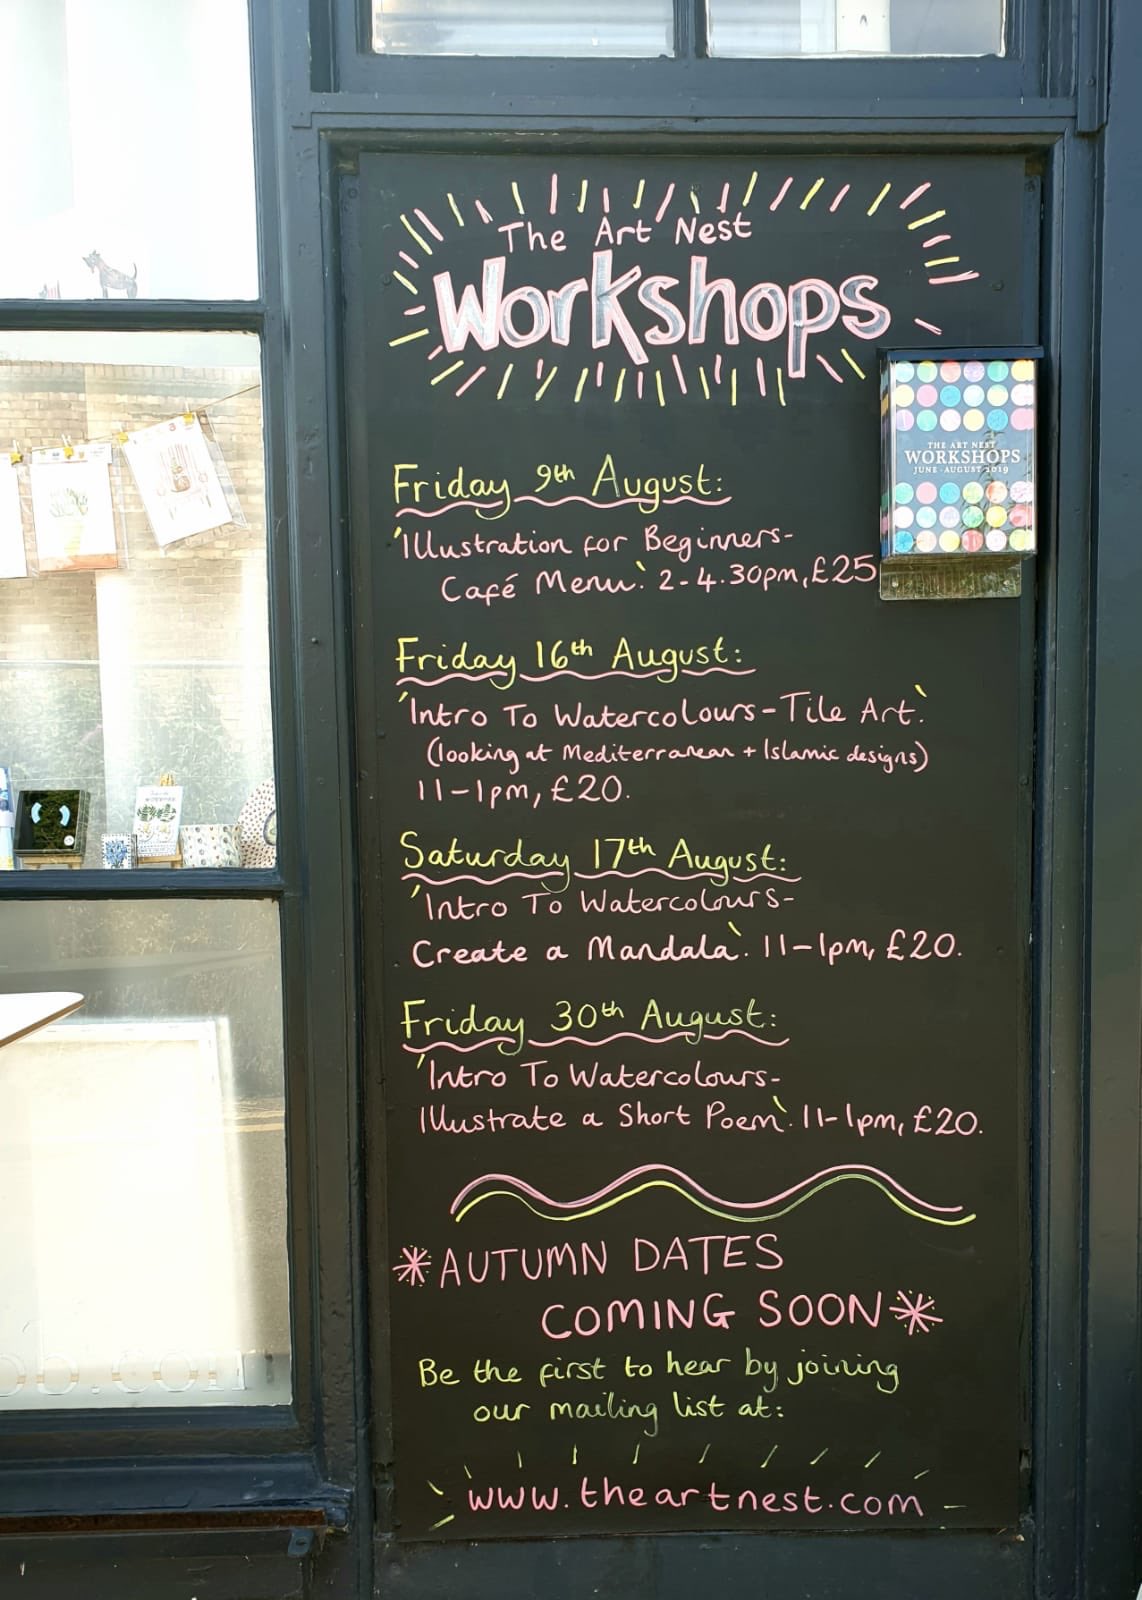 The Art Nest
Workshops
THE ART NEST
WORKSHOPS
JUNE - AUGUST 2019
Friday 9th August:
'Illustration for Beginners-
Café Menu'. 2-4.30pm, £25
Friday 16th August:
'Intro To Watercolours-Tile Art'.
(looking at Mediterranean + Islamic designs)
11-1pm, £20.
Saturday 17th August:
'Intro To Watercolours-
Create a Mandala'. 11-1pm, £20.
Friday 30th August:
'Intro To Watercolours-
Illustrate a Short Poem'. 11-1pm, £20.
*AUTUMN DATES
COMING SOON*
Be the first to hear by joining
our mailing list at:
www.theartnest.com